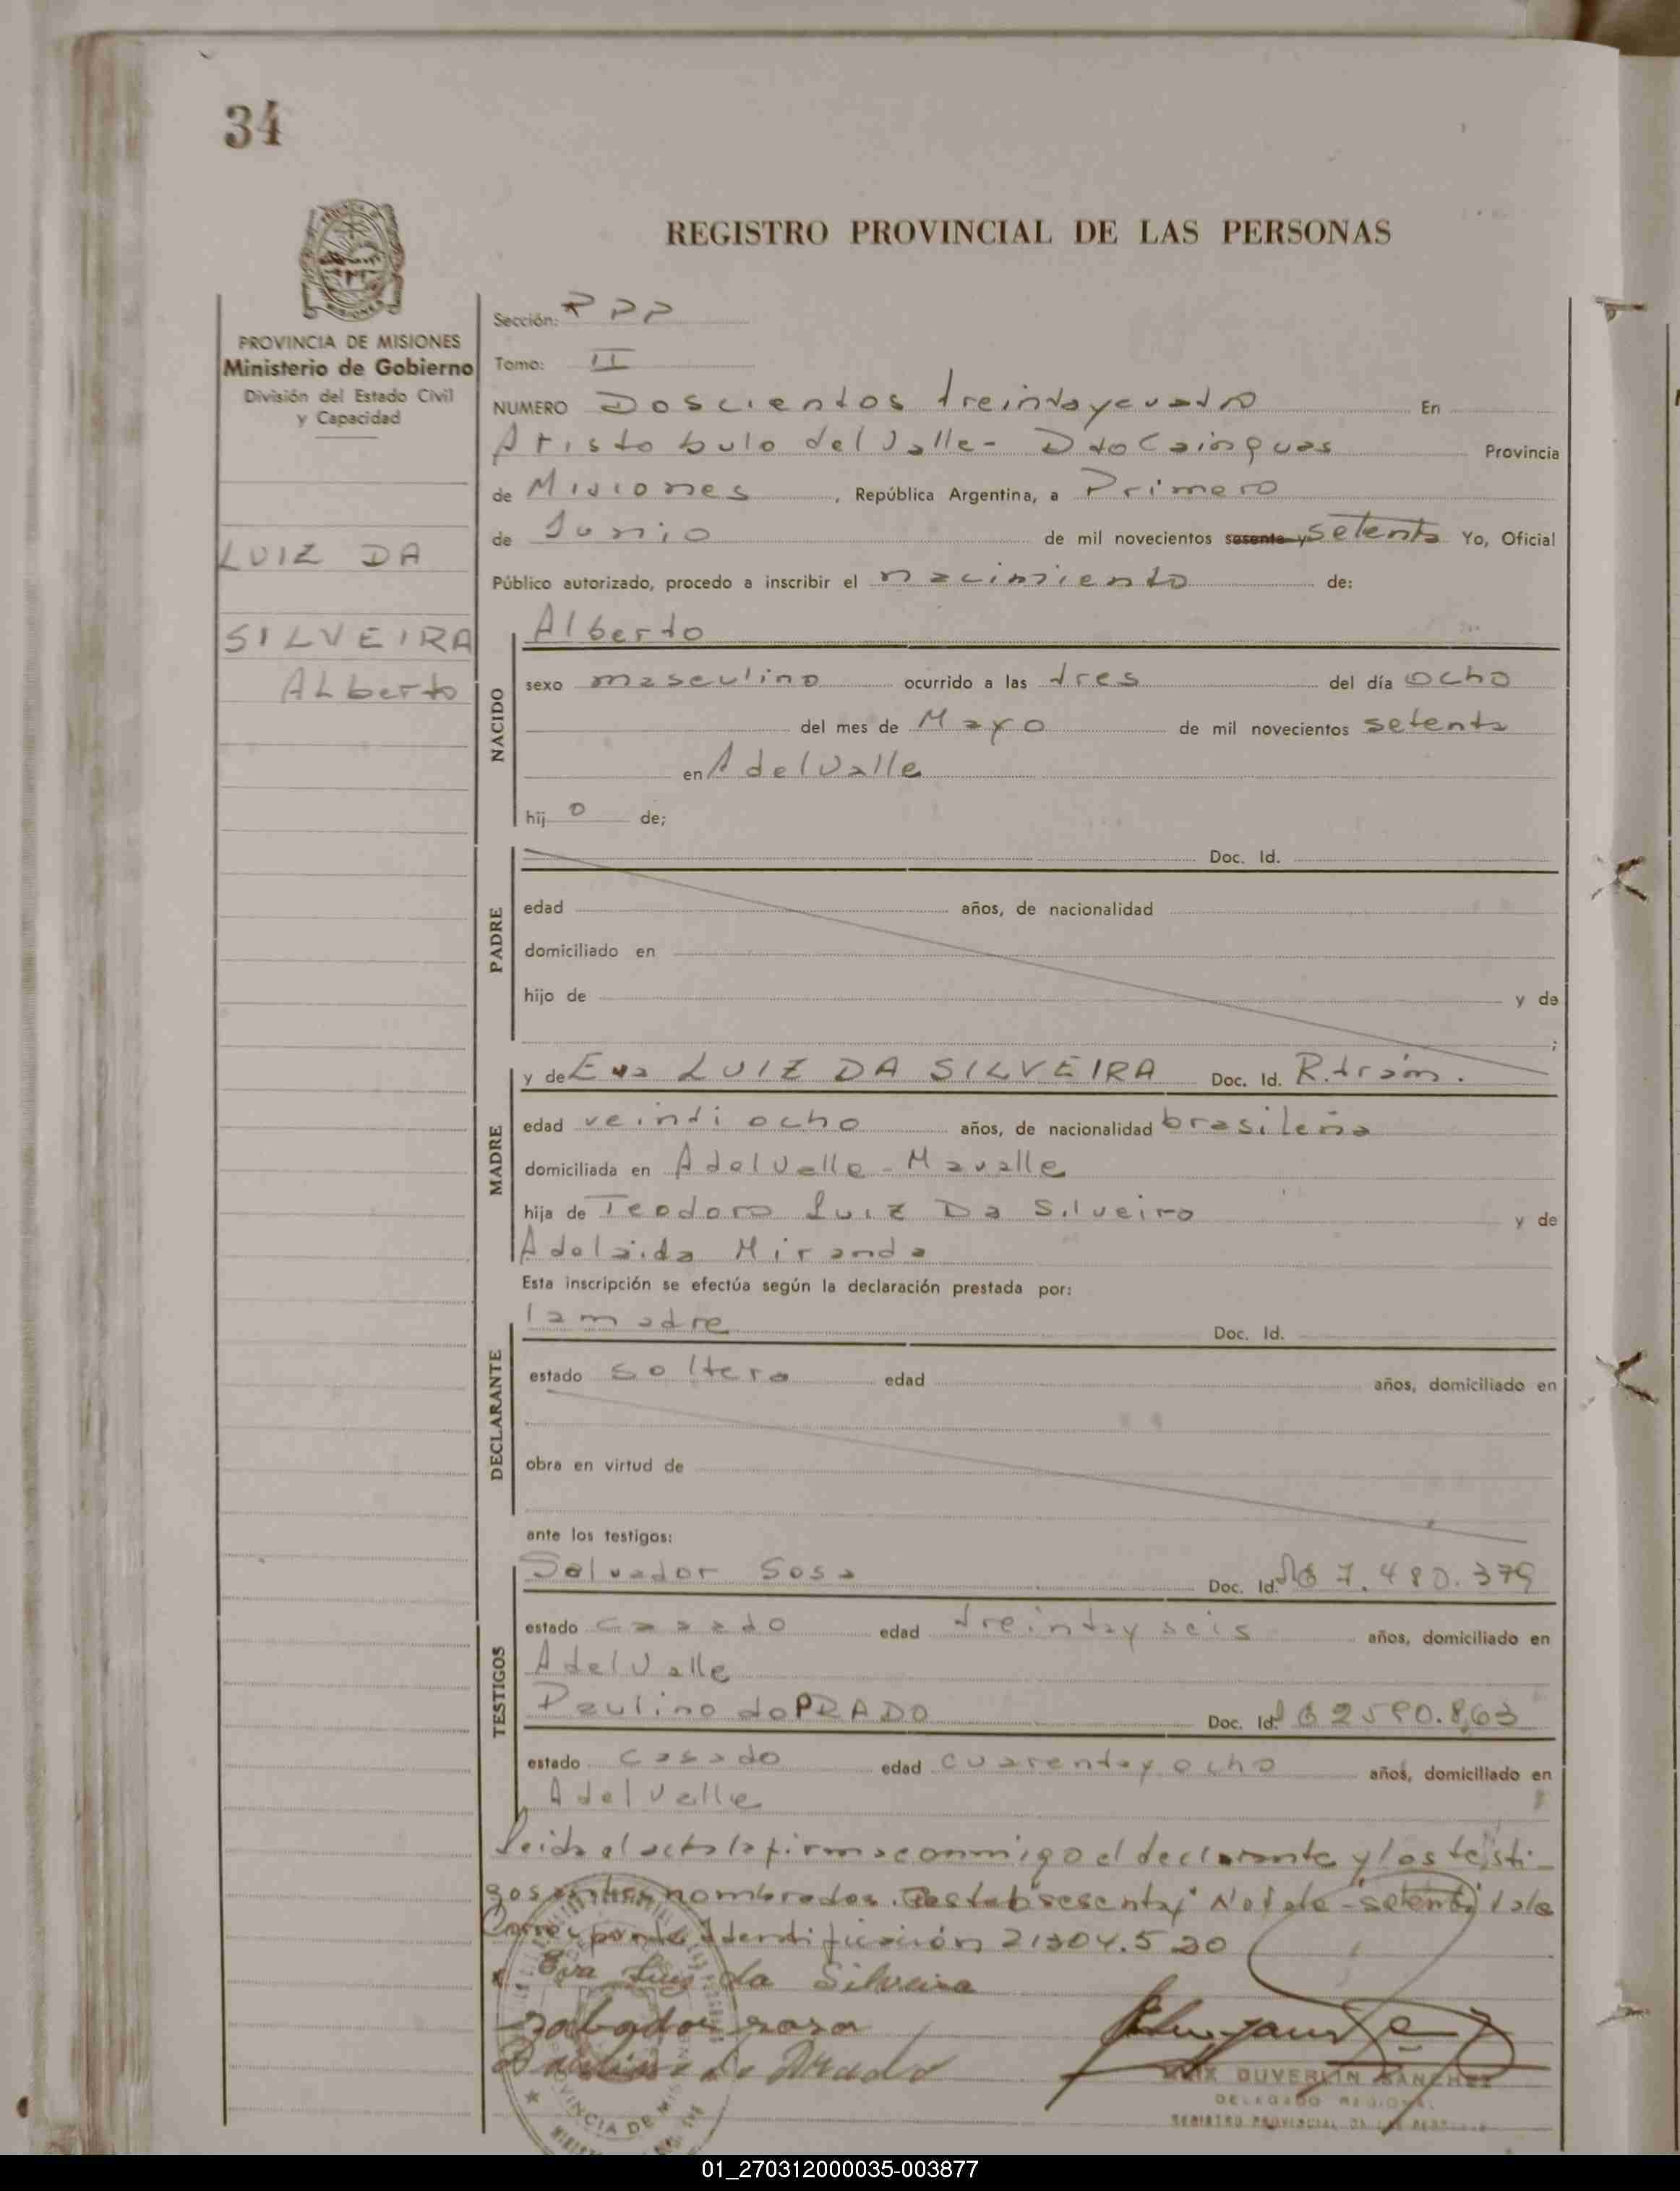 34
REGISTRO PROVINCIAL DE LAS PERSONAS
PROVINCIA DE MISIONES
Ministerio de Gobierno
División del Estado Civil
y Capacidad
LUIZ DA
SILVEIRA
ALberto
Sección: RPP
Tomo: II
NUMERO Doscientos treintaycuatro En
Aristobulo del Valle- Dto Cainguas Provincia
de Misiones, República Argentina, a Primero
de Junio de mil novecientos sesenta y setenta Yo, Oficial
Público autorizado, procedo a inscribir el nacimiento de:
Alberto
NACIDO
sexo masculino ocurrido a las tres del día ocho
del mes de Mayo de mil novecientos setenta
en AdelValle
hij o de;
PADRE
Doc. Id.
edad años, de nacionalidad
domiciliado en
hijo de y de
;
MADRE
y de Eva LUIZ DA SILVEIRA Doc. Id. R.trám.
edad veintiocho años, de nacionalidad brasileña
domiciliada en AdelValle - Mavalle
hija de Teodoro Luiz Da Silveira y de
Adelaida Miranda
Esta inscripción se efectúa según la declaración prestada por:
la madre Doc. Id.
DECLARANTE
estado soltera edad años, domiciliado en
obra en virtud de
ante los testigos:
TESTIGOS
Salvador Sosa Doc. Id. 7.480.379
estado casado edad treintay seis años, domiciliado en
AdelValle
Paulino doPRADO Doc. Id. 2590.863
estado casado edad cuarentay ocho años, domiciliado en
AdelValle
Leida el acta la firma conmigo el declarante y los testi-
gos nombrados. Testado sesenta y No vale - setenta vale
Corresponde Identificación 21304.520
Eva Luiz da Silveira
Salbador sosa
do Prado
DUVERLIN SANCHEZ
DELEGADO REGIONAL
REGISTRO PROVINCIAL DE LAS PERSONAS
VINCIA DE MIS
01_270312000035-003877